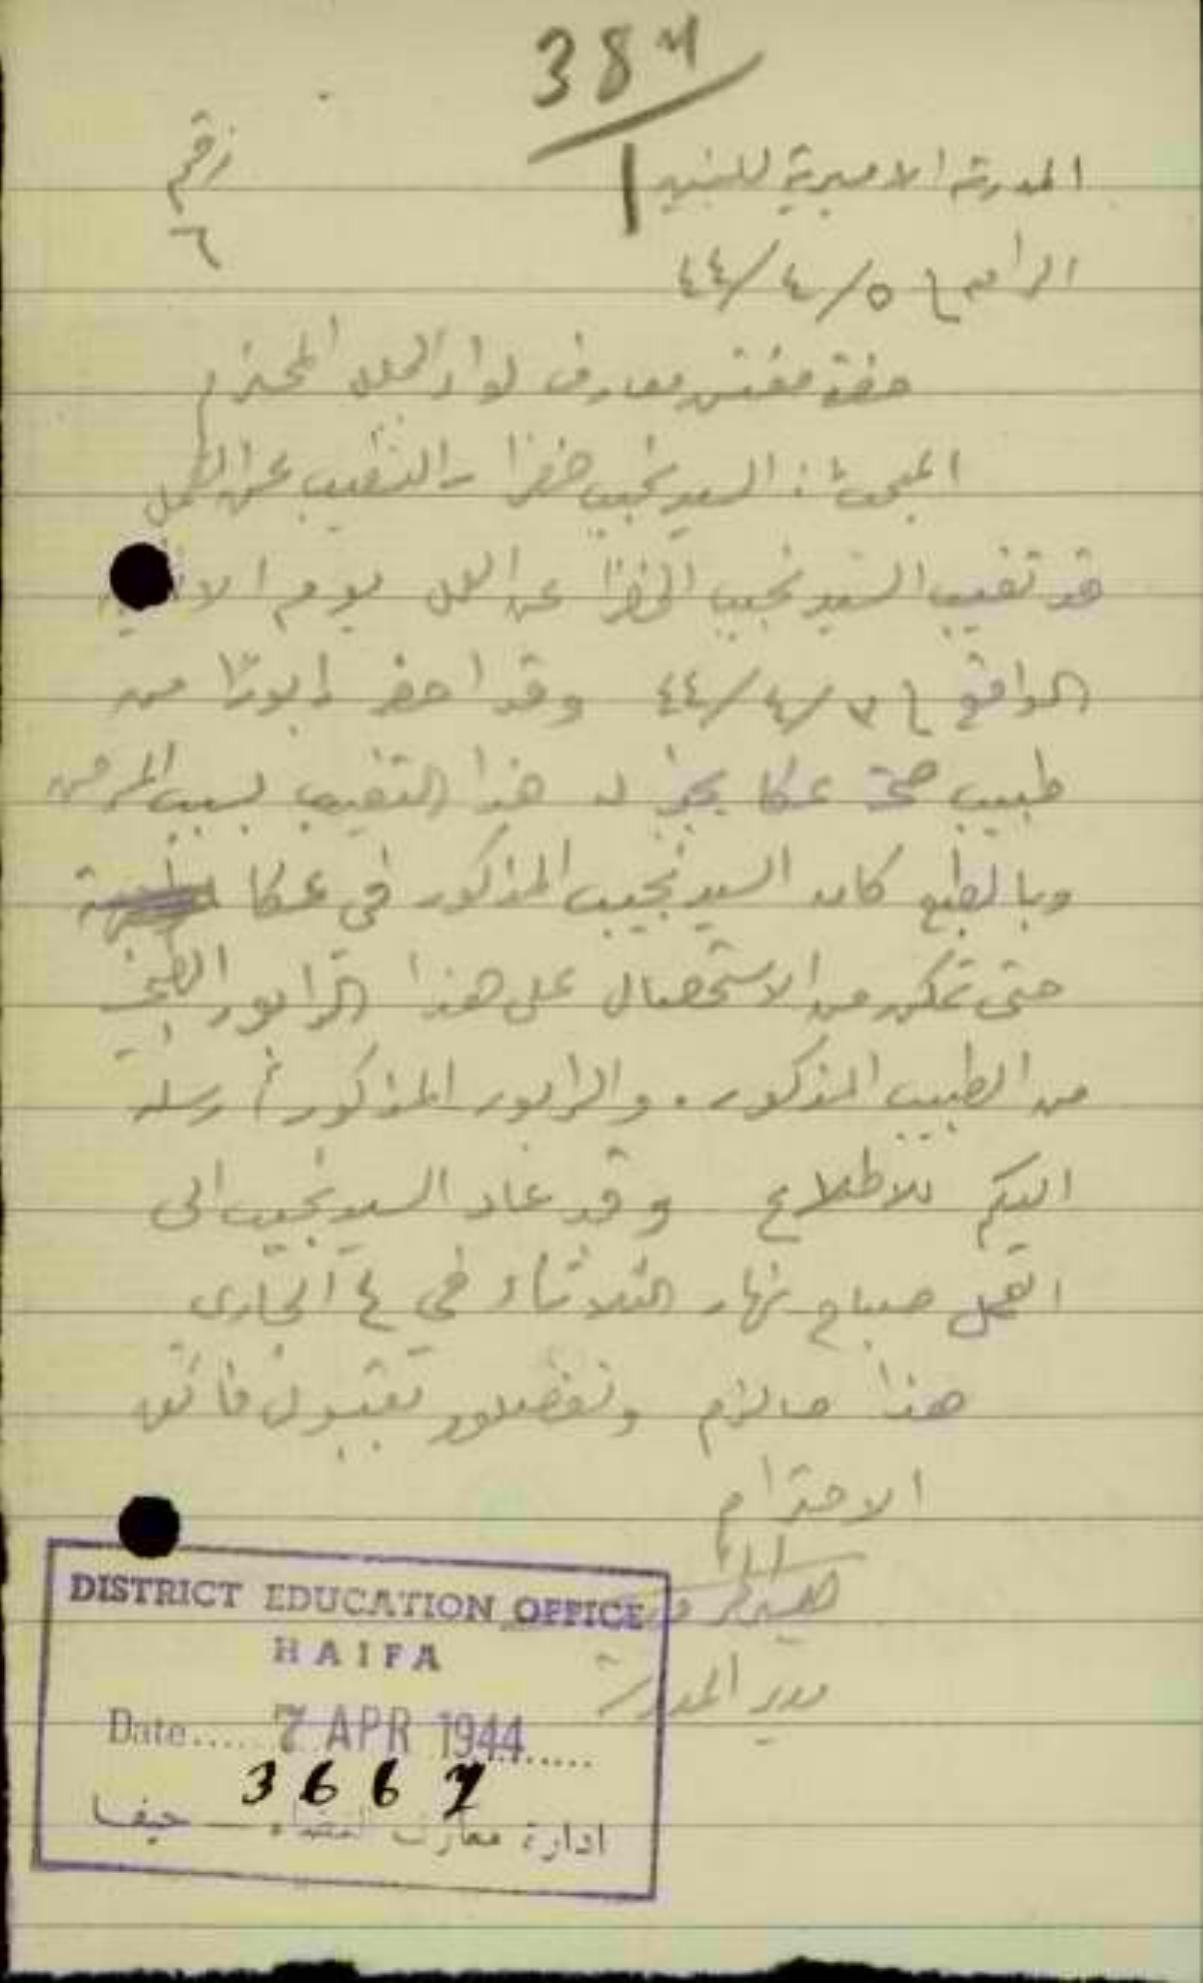 38
المدرسة الاميرية للبنين
رقم
٦
الرامه في ٤٤/٤/٥
حضرة مفتش معارف لواء الجليل المحترم
المبحث : السيد نجيب خضرا - التغيب عن العمل
قد تغيب السيد نجيب الخضرا عن العمل يوم
الواقع في ٤٤/٤/٣ وقد احضر رابورًا من
طبيب صحة عكا يجيز له هذا التغيب بسبب المرض
وبالطبع كان السيد نجيب المذكور في عكا
حتى تمكن من الاستحصال على هذا الرابور الطبي
من الطبيب المذكور . والرابور المذكور أرسله
اليكم للاطلاع وقد عاد السيد نجيب الى
العمل صباح نهار الثلاثاء في ٤ الجاري
هذا ما لزم وتفضلوا بقبول فائق
الاحترام
مدير المدرسة
DISTRICT EDUCATION OFFICE
HAIFA
Date..... 7 APR 1944
3667
ادارة معارف لواء حيفا